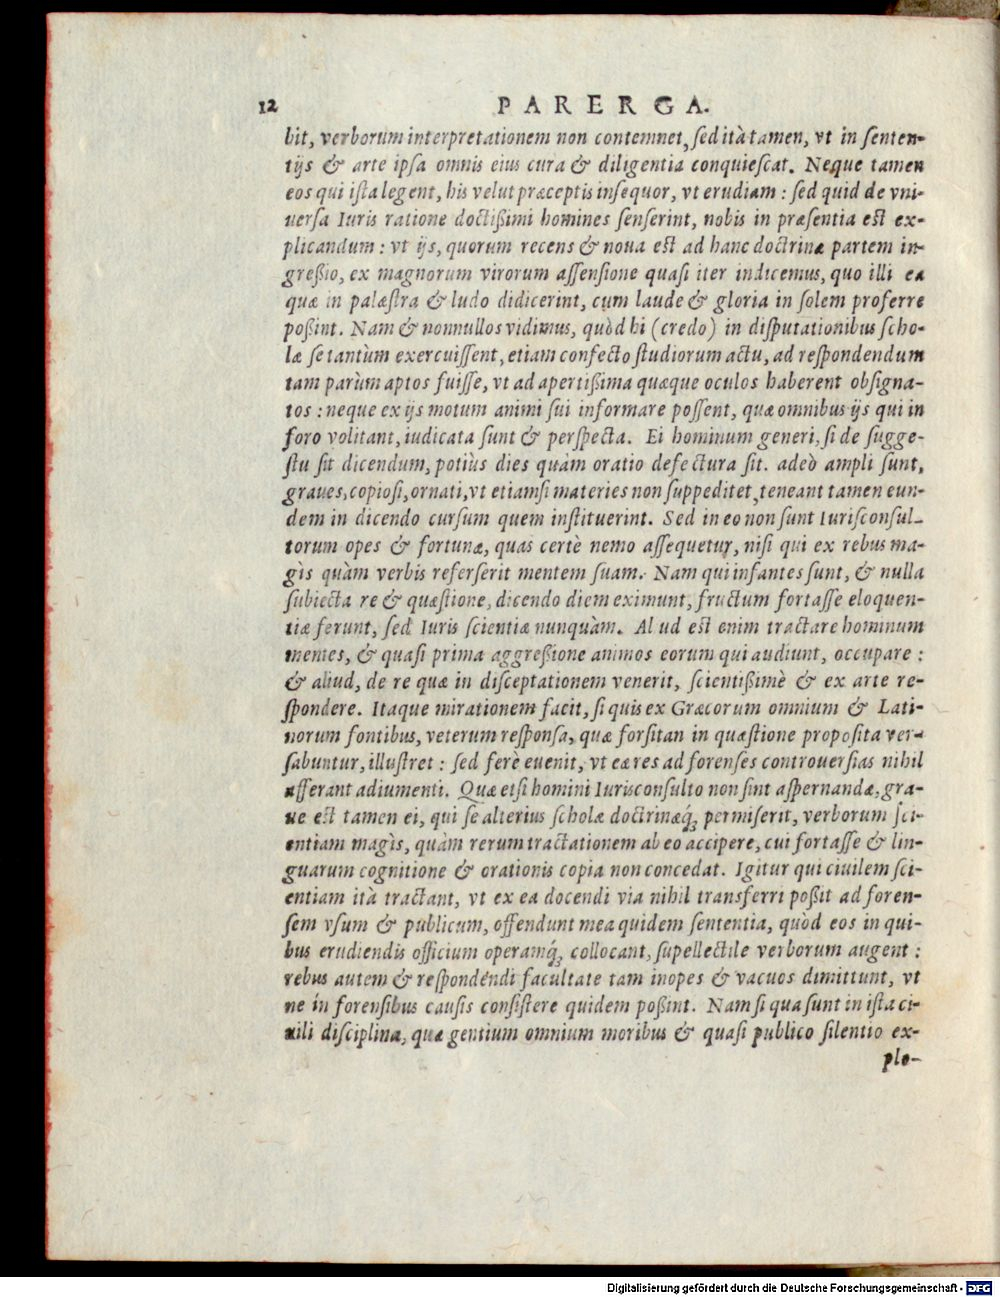 12 PARERGA.
bit, verborum interpretationem non contemnet, sed ità tamen, vt in senten-
tijs & arte ipsa omnis eius cura & diligentia conquiescat. Neque tamen
eos qui ista legent, his velut præceptis insequor, vt erudiam : sed quid de vni-
uersa Iuris ratione doctißimi homines senserint, nobis in præsentia est ex-
plicandum : vt ijs, quorum recens & noua est ad hanc doctrinæ partem in-
greßio, ex magnorum virorum assensione quasi iter indicemus, quo illi ea
quæ in palæstra & ludo didicerint, cum laude & gloria in solem proferre
poßint. Nam & nonnullos vidimus, quòd hi (credo) in disputationibus scho-
læ se tantùm exercuissent, etiam confecto studiorum actu, ad respondendum
tam parùm aptos fuisse, vt ad apertißima quæque oculos haberent obsigna-
tos : neque ex ijs motum animi sui informare possent, quæ omnibus ijs qui in
foro volitant, iudicata sunt & perspecta. Ei hominum generi, si de sugge-
stu sit dicendum, potiùs dies quàm oratio defectura sit. adeò ampli sunt,
graues, copiosi, ornati, vt etiamsi materies non suppeditet, teneant tamen eun-
dem in dicendo cursum quem instituerint. Sed in eo non sunt Iurisconsul-
torum opes & fortunæ, quas certè nemo assequetur, nisi qui ex rebus ma-
gìs quàm verbis referserit mentem suam. Nam qui infantes sunt, & nulla
subiecta re & quæstione, dicendo diem eximunt, fructum fortasse eloquen-
tiæ ferunt, sed Iuris scientiæ nunquàm. Aliud est enim tractare hominum
mentes, & quasi prima aggreßione animos eorum qui audiunt, occupare :
& aliud, de re quæ in disceptationem venerit, scientißimè & ex arte re-
spondere. Itaque mirationem facit, si quis ex Græcorum omnium & Lati-
norum fontibus, veterum responsa, quæ forsitan in quæstione proposita ver-
sabuntur, illustret : sed ferè euenit, vt eæ res ad forenses controuersias nihil
afferant adiumenti. Quæ etsi homini Iurisconsulto non sint aspernandæ, gra-
ue est tamen ei, qui se alterius scholæ doctrinæq́; permiserit, verborum sci-
entiam magìs, quàm rerum tractationem ab eo accipere, cui fortasse & lin-
guarum cognitione & orationis copia non concedat. Igitur qui ciuilem sci-
entiam ità tractant, vt ex ea docendi via nihil transferri poßit ad foren-
sem vsum & publicum, offendunt mea quidem sententia, quòd eos in qui-
bus erudiendis officium operamq́; collocant, supellectile verborum augent :
rebus autem & respondendi facultate tam inopes & vacuos dimittunt, vt
ne in forensibus causis consistere quidem poßint. Nam si qua sunt in ista ci-
uili disciplina, quæ gentium omnium moribus & quasi publico silentio ex-
plo-
Digitalisierung gefördert durch die Deutsche Forschungsgemeinschaft - DFG